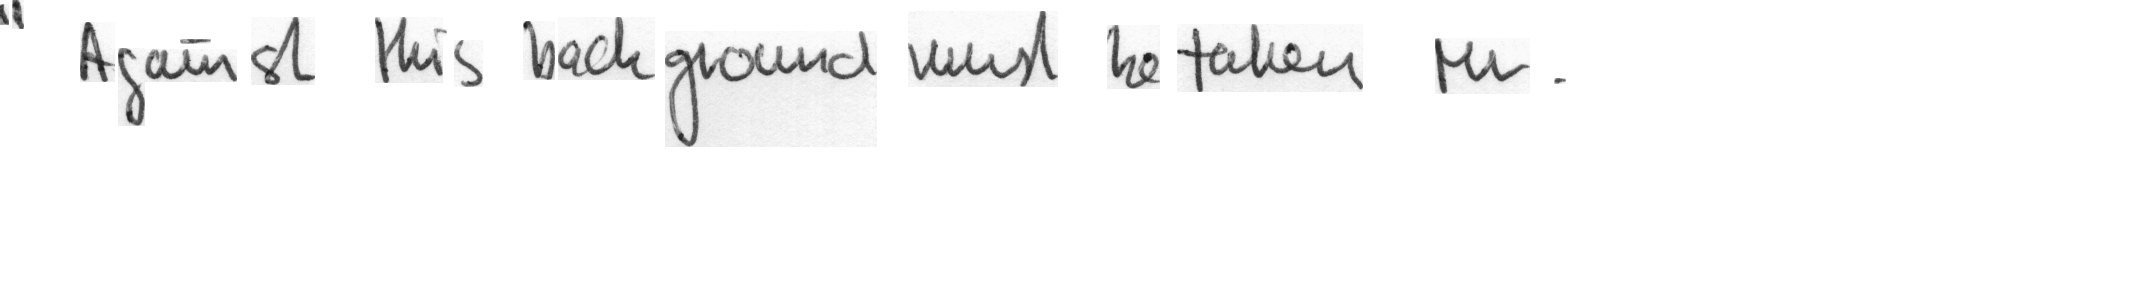 " Against this background must be taken Mr .